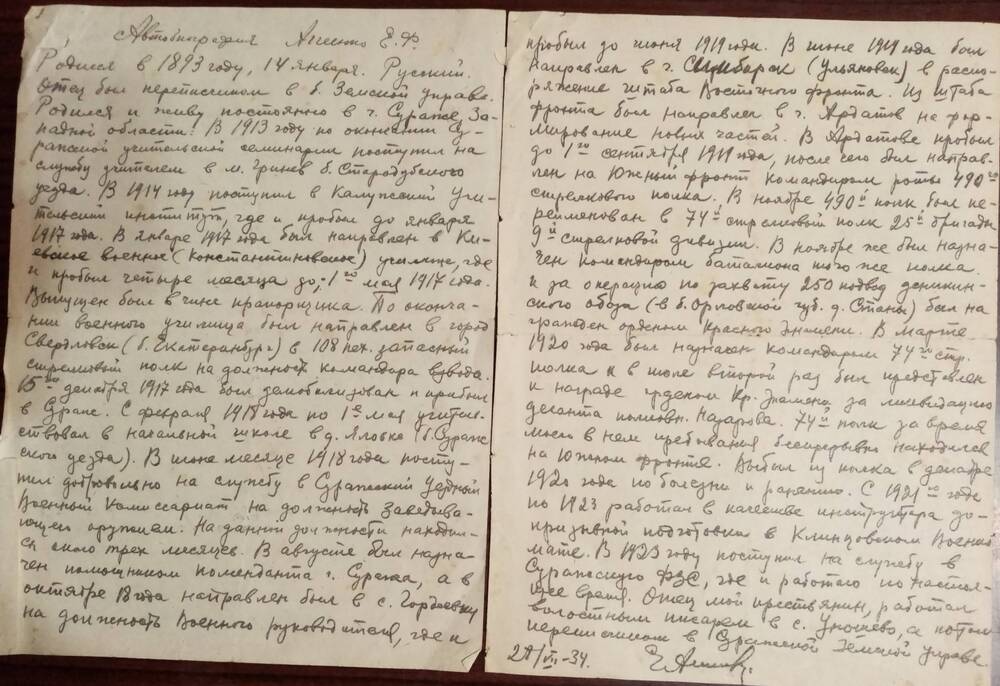 Автобиография Агеенко Е.Ф.
Родился в 1893 году, 14 января. Русский.
Отец был переписчиком в б. Земской управе.
Родился и живу постоянно в г. Сураже, За-
падной области. В 1913 году по окончании Су-
ражской учительской семинарии поступил на
службу учителем в м. Гринев б. Стародубского
уезда. В 1914 году поступил в Калужский Учи-
тельский институт, где и пробыл до января
1917 года. В январе 1917 года был направлен в Ки-
евское военное (Константиновское) училище, где
и пробыл четыре месяца до 1го мая 1917 года.
Выпущен был в чине прапорщика. По оконча-
нии военного училища был направлен в город
Свердловск (б. Екатеринбург) в 108 пех. запасный
стрелковый полк на должность командора взвода.
15го декабря 1917 года был демобилизован и прибыл
в Сураж. С февраля 1918 года по 1е мая учитель-
ствовал в начальной школе в д. Яловка (б. Сураж-
ского уезда). В июне месяце 1918 года посту-
пил добровольно на службу в Суражский Уездный
Военный Комиссариат на должность заведова-
ющего оружием. На данной должности находил-
ся около трех месяцев. В августе был назна-
чен помощником коменданта г. Суража, а в
октябре 18 года направлен был в с. Гордеевку
на должность Военного руководителя, где и
пробыл до июня 1919 года. В июне 1919 года был
направлен в г. Симбирск (Ульяновск) в распо-
ряжение штаба Восточного фронта. Из штаба
фронта был направлен в г. Ардатов на фор-
мирование новых частей. В Ардатове пробыл
до 1го сентября 1919 года, после чего был направ-
лен на Южный фронт командиром роты 490го
стрелкового полка. В ноябре 490й полк был пе-
реименован в 74й стрелковый полк 25й бригады
9й стрелковой дивизии. В ноябре же был назна-
чен командиром батальона того же полка.
и за операцию по захвату 250 подвод деникин-
ского обоза (в б. Орловской губ. д. Станы) был на-
гражден орденом Красного Знамени. В марте
1920 года был назначен командиром 74го стр.
полка и в июле второй раз был представлен
к награде орденом Кр. Знамени за ликвидацию
десанта полковн. Назарова. 74й полк за время
моего в нем пребывания беспрерывно находился
на Южном фронте. Выбыл из полка в декабре
1920 года по болезни и ранению. С 1921го года
по 1923 работал в качестве инструктора до-
призывной подготовки в Клинцовском Военко-
мате. В 1923 году поступил на службу в
Суражскую ФЗС, где и работаю по настоя-
щее время. Отец мой крестьянин, работал
волостным писарем в с. Уношево, а потом
переписчиком в Суражской Земской Управе.
VII-34.